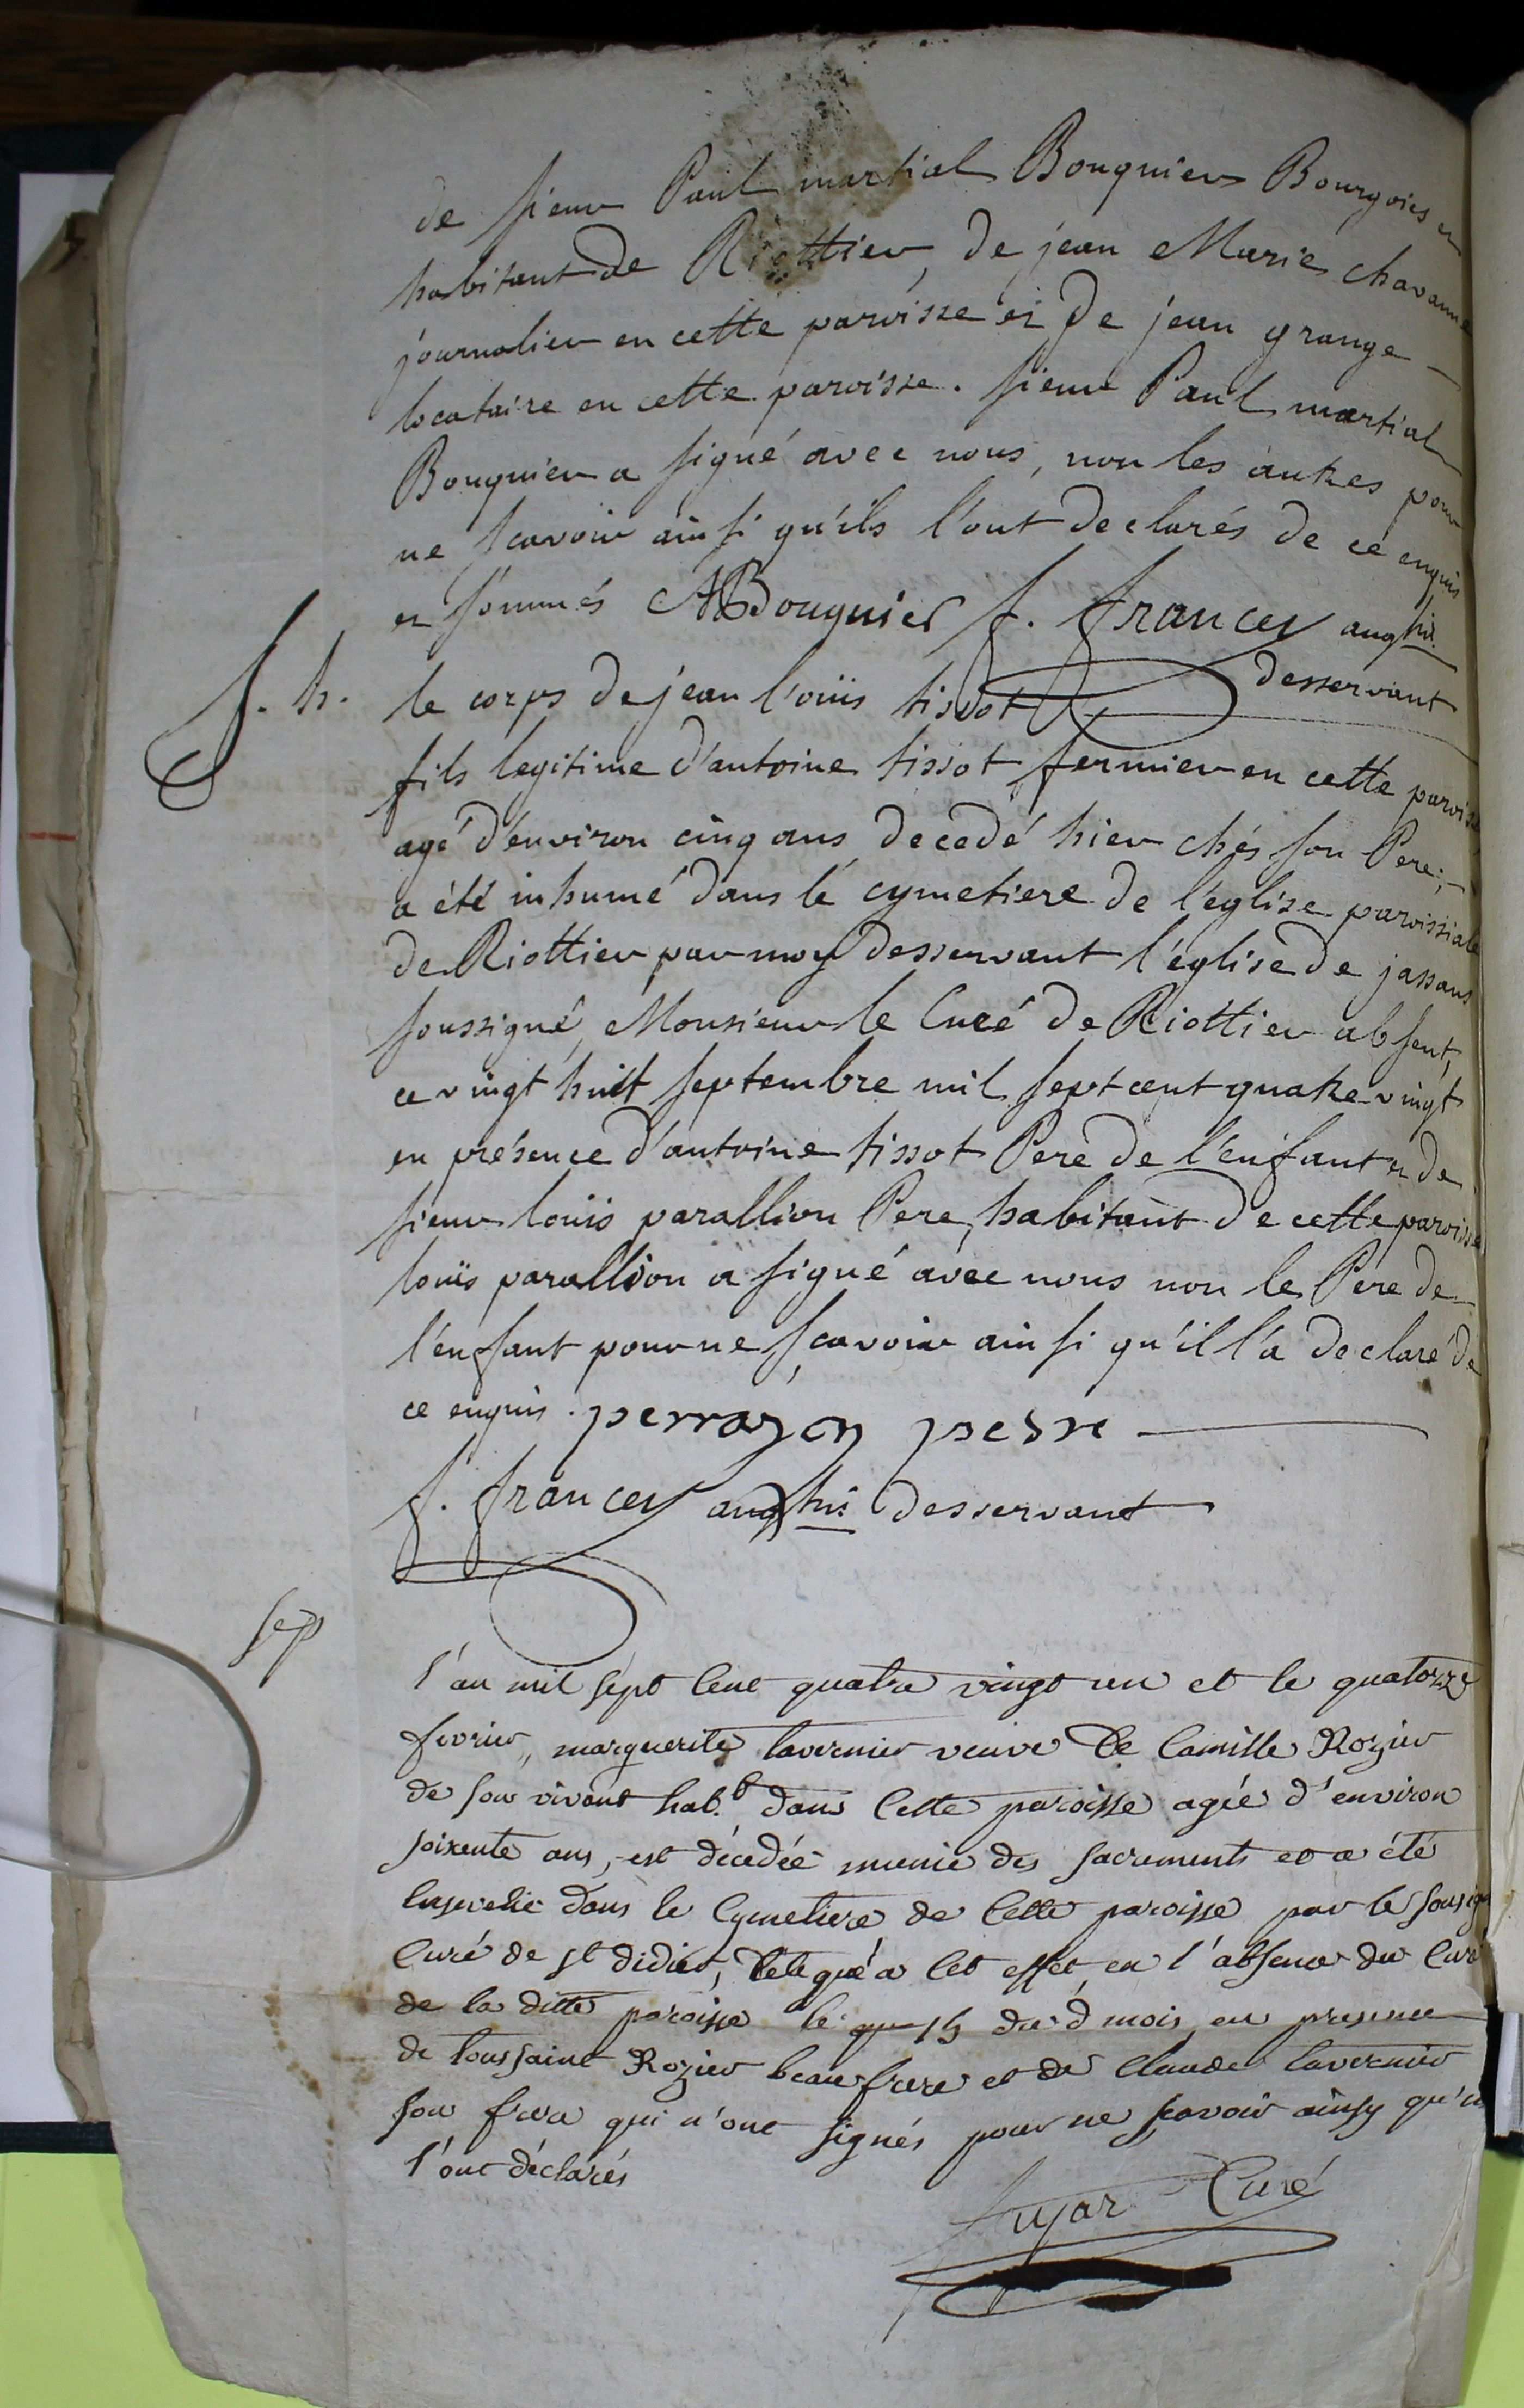 de sieur Paul martial Bouquier Bourgoies et
habitant de Riottier, de jean Marie chavanne
journalier en cette paroisse et de jean grange
locataire en cette paroisse. sieur Paul martial
Bouquier a signé avec nous, non les autres pour
ne scavoir ainsi qu'ils l'ont declarés de ce enquis
et sommés Bouquier f. francey aug
desservant
f. h. le corps de jean l'ouïs tissot
fils legitime d'antoine tissot fermier en cette paroisse
agé d'environ cinq ans decedé hier chés son Pere;
a été inhumé dans le cymetiere de l'église paroissiale
de Riottier par moy desservant l'église de jassans
soussigné, Monsieur le Curé de Riottier absent,
ce vingt huit septembre mil sept cent quatre vingt
en présence d'antoine tissot Pere de l'enfant et de
sieur louïs parallion Pere, habitant de cette paroisse
louïs parallion a signé avec nous non le Pere de
l'enfant pour ne scavoir ainsi qu'il l'a declaré de
ce enquis. perrayon pesre
f. francey desservant
sep
l'an mil sept Cent quatre vingt un et le quatorze
fevrier, marguerite tavernier veuve de Camille Rozier
de son vivant hab.t dans Cette paroisse agée d'environ
soixente ans, est décedée munie des sacrements et a été
Ensevelie dans le Cymetiere de Cette paroisse par le
Curé de st didier, delegué a Cet effet, en l'absence du Curé
de la ditte paroisse le 15 du d mois en presence
de toussaint Rozier beaufrere et de Claude tavernier
son frere qui n'ont signés pour ne scavoir ainsy qu'ils
l'ont déclarés
Curé